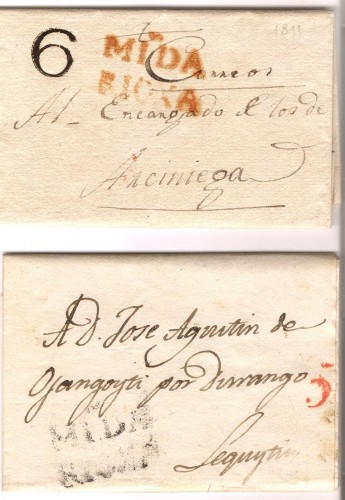 1811
6
MIDA
RIOXA
Correos
Al Encargado de los de
Arciniega
A D. Jose Agustin de
Ojangoyti por Durango
5
MIDA
RIOXA
Lequeytio